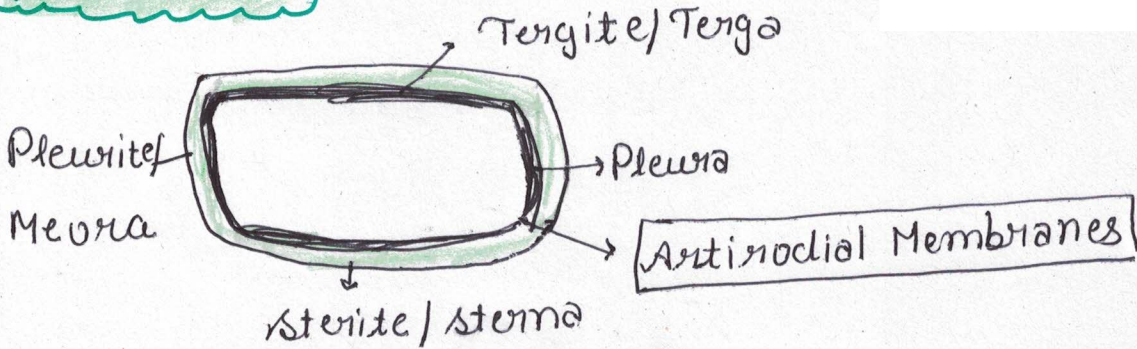 Tergite/Terga
Pleurite/
Pleura
Meura
Artirodial Membranes
Sterite/Sterna